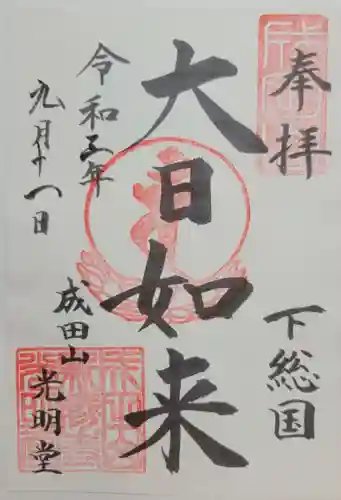 奉拝
下総国
大日如来
令和三年
九月十八日
成田山
光明堂